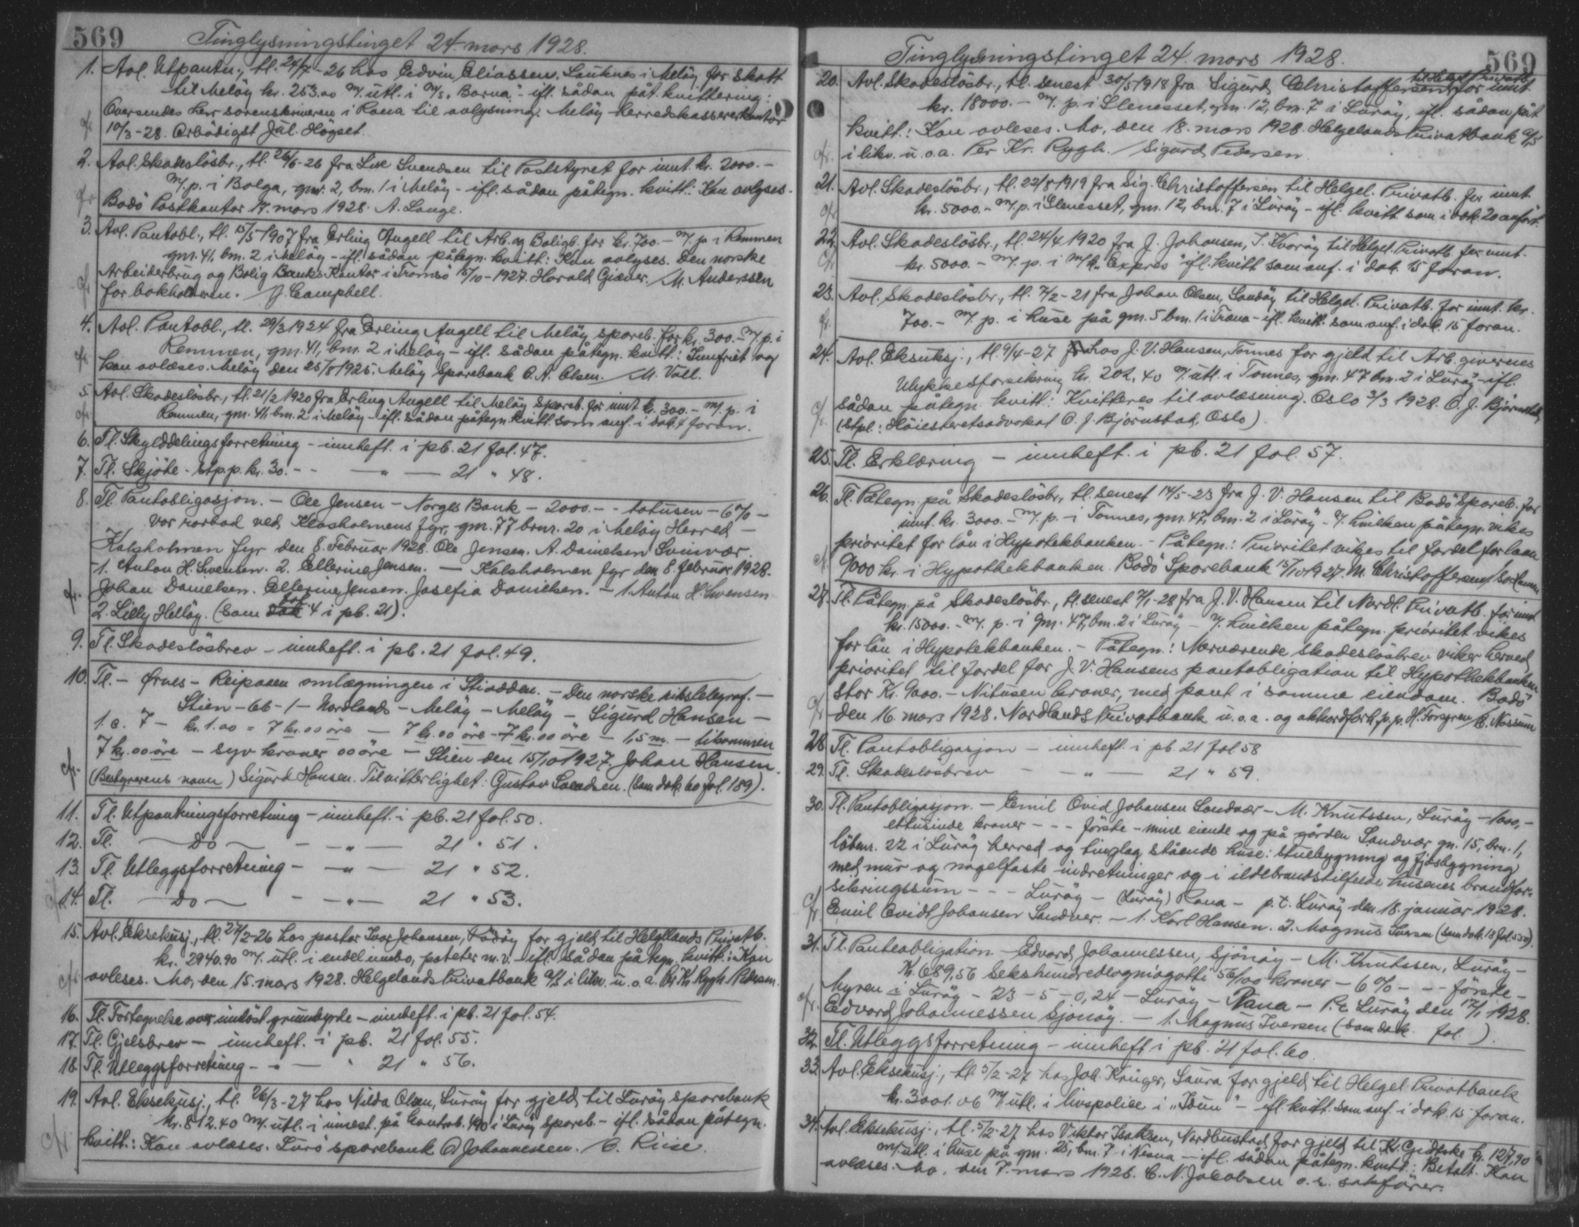 569
Tinglysningstinget 24 mars 1928.
1. Avl. Utpantn., tl. 24/7-26 hos Edvin Eliassen, Lauknes i Meløy for skatt
til Meløy kr. 253.00 m/ utl. i m/k "Borna" ifl. sådan påt. kvittering:
Oversendes herr sorenskriveren i Rana til avlysning. Meløy Herredskassererkontor
10/3-28. Ærbødigst Jul. Høgset.
2. Avl. Skadesløsbr., tl. 26/6-26 fra Lise Svendsen til Poststyret for innt. kr. 2000.-
m/ p. i Bolga, gnr. 2, bnr. 1 i Meløy - ifl. sådan påtegn. kvitt.: Kan avlyses.
Bodø Postkontor 17. mars 1928. A. Lange.
3. Avl. Pantobl., tl. 15/5 1907 fra Erling Angell til Arb. og Boligb. for kr. 700.- m/ p. i Remmen
gnr. 41 bnr. 2 i Meløy - ifl. sådan påtegn. kvitt: Kan avlyses. Den norske
Arbeiderbrug og Bolig Banks Kontor i Tromsø 15/10-1927. Harald Giæver. M. Anderssen
for bokholderen. J. Campbell.
4. Avl. Pantobl., tl. 29/3 1924 fra Erling Angell til Meløy spareb. for kr. 300.- m/ p. i
Remmen, gnr. 41, bnr. 2 i Meløy - ifl. sådan påtegn. kvitt.: Innfriet og
kan avlæses. Meløy den 25/8 1925. Meløy Sparebank O. A. Olsen. M. Vall.
5. Avl. Skadesløsbr., tl. 21/2 1920 fra Erling Angell til Meløy Spareb. for innt. kr. 300.- m/ p. i
Remmen, gnr. 41 bnr. 2 i Meløy - ifl. sådan påtegn. kvitt. som anf. i dok. 4 foran.
6. Tl. Skylddelingsforretning - innheft. i pb. 21 fol. 47.
7. Tl. Skjøte - Stpp. kr. 30. - - — " — 21 " 48.
8. Tl. Pantobligasjon. - Ole Jensen - Norges Bank - 2000.- - totusen - 6% -
Vor rorbod ved Kalsholmens fyr, gnr. 77 bnr. 20 i Meløy Herred -
Kalsholmen fyr den 8. Februar 1928. Ole Jensen. A. Danielsen
- 1. Anton H. Svensen. 2. Ellerine Jensen. — Kalsholmen fyr den 8 februar 1928.
Johan Danielsen. Ellerine Jensen. Josefia Danielsen. - 1. Anton H. Svensen
2. Lilly Helløy. (Som fol. 4 i pb. 21).
9. Tl. Skadesløsbrev - innheft. i pb. 21 fol. 49.
10. Tl. - Ørnes - Reiparen omlægningen i - Den norske rikstelegraf. -
Stien - 66 - 1 - Nordlands - Meløy - Meløy - Sigurd Hansen -
1. c. 7 - kr 1.00 = 7 kr. 00 øre - 7 kr. 00 øre - 7 kr. 00 øre - 1,5 m. - tilsammen
7 kr. 00 øre - syv kroner 00 øre - Stien den 15/10 1927. Johan Hansen.
( navn) Sigurd Hansen. Til vitterlighet: Gustav Svendsen. (Som dok. 60 fol. 189).
11. Tl. Utpantningsforretning - innheft. i pb. 21 fol. 50.
12. Tl. — Do — - - " — 21 " 51.
13. Tl. Utleggsforretning - — " — 21 " 52.
14. Tl. — Do — - - " — 21 " 53.
15. Avl. Eksekusj., tl. 27/2-26 hos pastor Ivar Johansen, for gjeld til Helgelands Privatb.
kr. 2940.90 m/ utl. i endel innbo, poteter m. v. - ifl. sådan påtegn. kvitt.: Kan
avleses. Mo, den 15. mars 1928. Helgelands Privatbank A/S i likv. u. o. a. Per Kr. Rygh. Pedersen.
16. Tl. Fortegnelse over innløst grunnbyrde - innheft. i pb. 21 fol. 54.
17. Tl. Gjelsbrev - innheft. i pb. 21 fol. 55.
18. Tl. Utleggsforretning - " — " 21 " 56.
19. Avl. Eksekusj., tl. 26/3-27 hos Nilda Olsen, Lurøy for gjeld til Lurøy sparebank
kr. 512.40 m/ utl. i innest. på kontrab. 190 i Lurøy spareb. - ifl. sådan påtegn.
kvitt.: Kan avlæses. Lurø sparebank O. Johannessen. C. Riise.
569
Tinglysningstinget 24. mars 1928.
20. Avl. Skadesløsbr., tl. senest 30/5 1918 fra Sigurd Christoffersen til Helgel. Privatb. for innt.
kr. 18000.- m/ p. i Slenesset, gnr. 12, bnr. 7 i Lurøy, ifl. sådan påt.
kvitt.: Kan avleses. Mo, den 18. mars 1928. Helgelands Privatbank A/S
i likv. u. o. a. Per Kr. Rygh. Sigurd Pedersen.
21. Avl. Skadesløsbr., tl. 22/8 1919 fra Sig. Christoffersen til Helgel. Privatb. for innt.
kr. 5000.- m/ p. i Slenesset, gnr. 12, bnr. 7 i Lurøy - ifl. kvitt. som i dok. 20 anført.
22. Avl. Skadesløsbr., tl. 24/4 1920 fra J. Johansen, S. Kvarøy til Helgel. Privatb. for innt.
kr. 5000.- m/ p. i m/k. "Expres" ifl. kvitt. som anf. i dok. 15 foran.
23. Avl. Skadesløsbr., tl. 7/2-21 fra Johan Olsen, Sandøy til Helgel. Privatb. for innt. kr.
700.- m/ p. i huse på gnr. 5 bnr. 1 i Træna - ifl. kvitt. som anf. i dok. 15 foran.
24. Avl. Eksekusj., tl. 9/4-27 hos J. V. Hansen, Tonnes for gjeld til Arb. givernes
Ulykkesforsikring kr. 202,40 m/ utl. i Tonnes, gnr. 47 bnr. 2 i Lurøy - ifl.
sådan påtegn. kvitt.: Kvitteres til avlæsning. Oslo 3/3 1928. O. J. Bjørnstad
(Stpl: Høiesteretsadvokat O. J. Bjørnstad, Oslo).
25. Tl. Erklæring - innheft. i pb. 21 fol. 57.
26. Tl. Påtegn. på Skadesløsbr., tl. senest 14/5-23 fra J. V. Hansen til Bodø Spareb. for
innt. kr. 3000.- m/ p. i Tonnes, gnr. 47, bnr. 2 i Lurøy - v/ hvilken påtegn. vikes
prioritet for lån i Hypotekbanken. - Påtegn.: Prioritet vikes til fordel for laan
9000 kr. i Hypothekbanken. Bodø Sparebank 15/10 1927. M. Christoffersen
27. Tl. Påtegn. på Skadesløsbr., tl. senest 7/1-28 fra J. V. Hansen til Nordl. Privatb. for innt.
kr. 15000.- m/ p. i gnr. 47, bnr. 2 i Lurøy - v/ hvilken påtegn. prioritet vikes
for lån i Hypotekbanken. - Påtegn.: Nærværende skadesløsbrev viker herved
prioritet til fordel for J. V. Hansens pantobligation til Hypothekbanken
stor Kr. 9000.- Nitusen kroner, med pant i samme eiendom. Bodø
den 16. mars 1928. Nordlands Privatbank u. o. a. og akkordforh. p.p. H. Forsgren C. Nissen
28. Tl. Pantobligasjon - innheft. i pb. 21 fol. 58
29. Tl. Skadesløsbrev — — " — 21 " 59.
30. Tl. Pantobligasjon. - Emil Ovid Johansen Sandvær - M. Knutssen, Lurøy - 1000,-
ettusinde kroner - - - første - mine eiende og på gården Sandvær gn. 15, brn. 1,
løbenr. 22 i Lurøy herred og tinglag stående huse: stuebygning og fjøsbygning
med mur og nagelfaste indretninger og i ildebrandstilfælde husenes brandfor-
sikringssum - - - Lurøy - (Lurøy) Rana - p.t. Lurøy den 18. januar 1928.
Emil Ovidt Johansen Sandvær. - 1. Karl Hansen. 2. Magnus Iversen
31. Tl. Panteobligation - Edvard Johannessen, Sjonøy - M. Knutssen, Lurøy -
Kr. 689,56 Sekshundredeogniogotti 56/100 kroner - 6% - - - første -
Myren i Lurøy - 23 - 5 - 0,24 - Lurøy - Rana - P.t. Lurøy den 17/1 1928.
Edvard Johannessen Sjonøy. - 1. Magnus Iversen (Som dok. fol. ).
32. Tl. Utleggsforretning - innheft. i pb. 21 fol. 60.
33. Avl. Eksekusj., tl. 5/2-27 hos Joh. Krüger, Saura for gjeld til Helgel. Privatbank
kr. 3001.06 m/ utl. i livspolice i "Idun" - ifl. kvitt. som anf. i dok. 15 foran.
34. Avl. Eksekusj., tl. 5/2-27 hos Viktor Isaksen, Nordbustad for gjeld til K. kr. 127,90
m/ utl. i huse på gnr. 25, bnr. 7 i Nesna - ifl. sådan påtegn. kvitt.: Betalt. Kan
avlæses. Mo, den 7. mars 1928. C. N. Jacobsen o. r. sakfører.